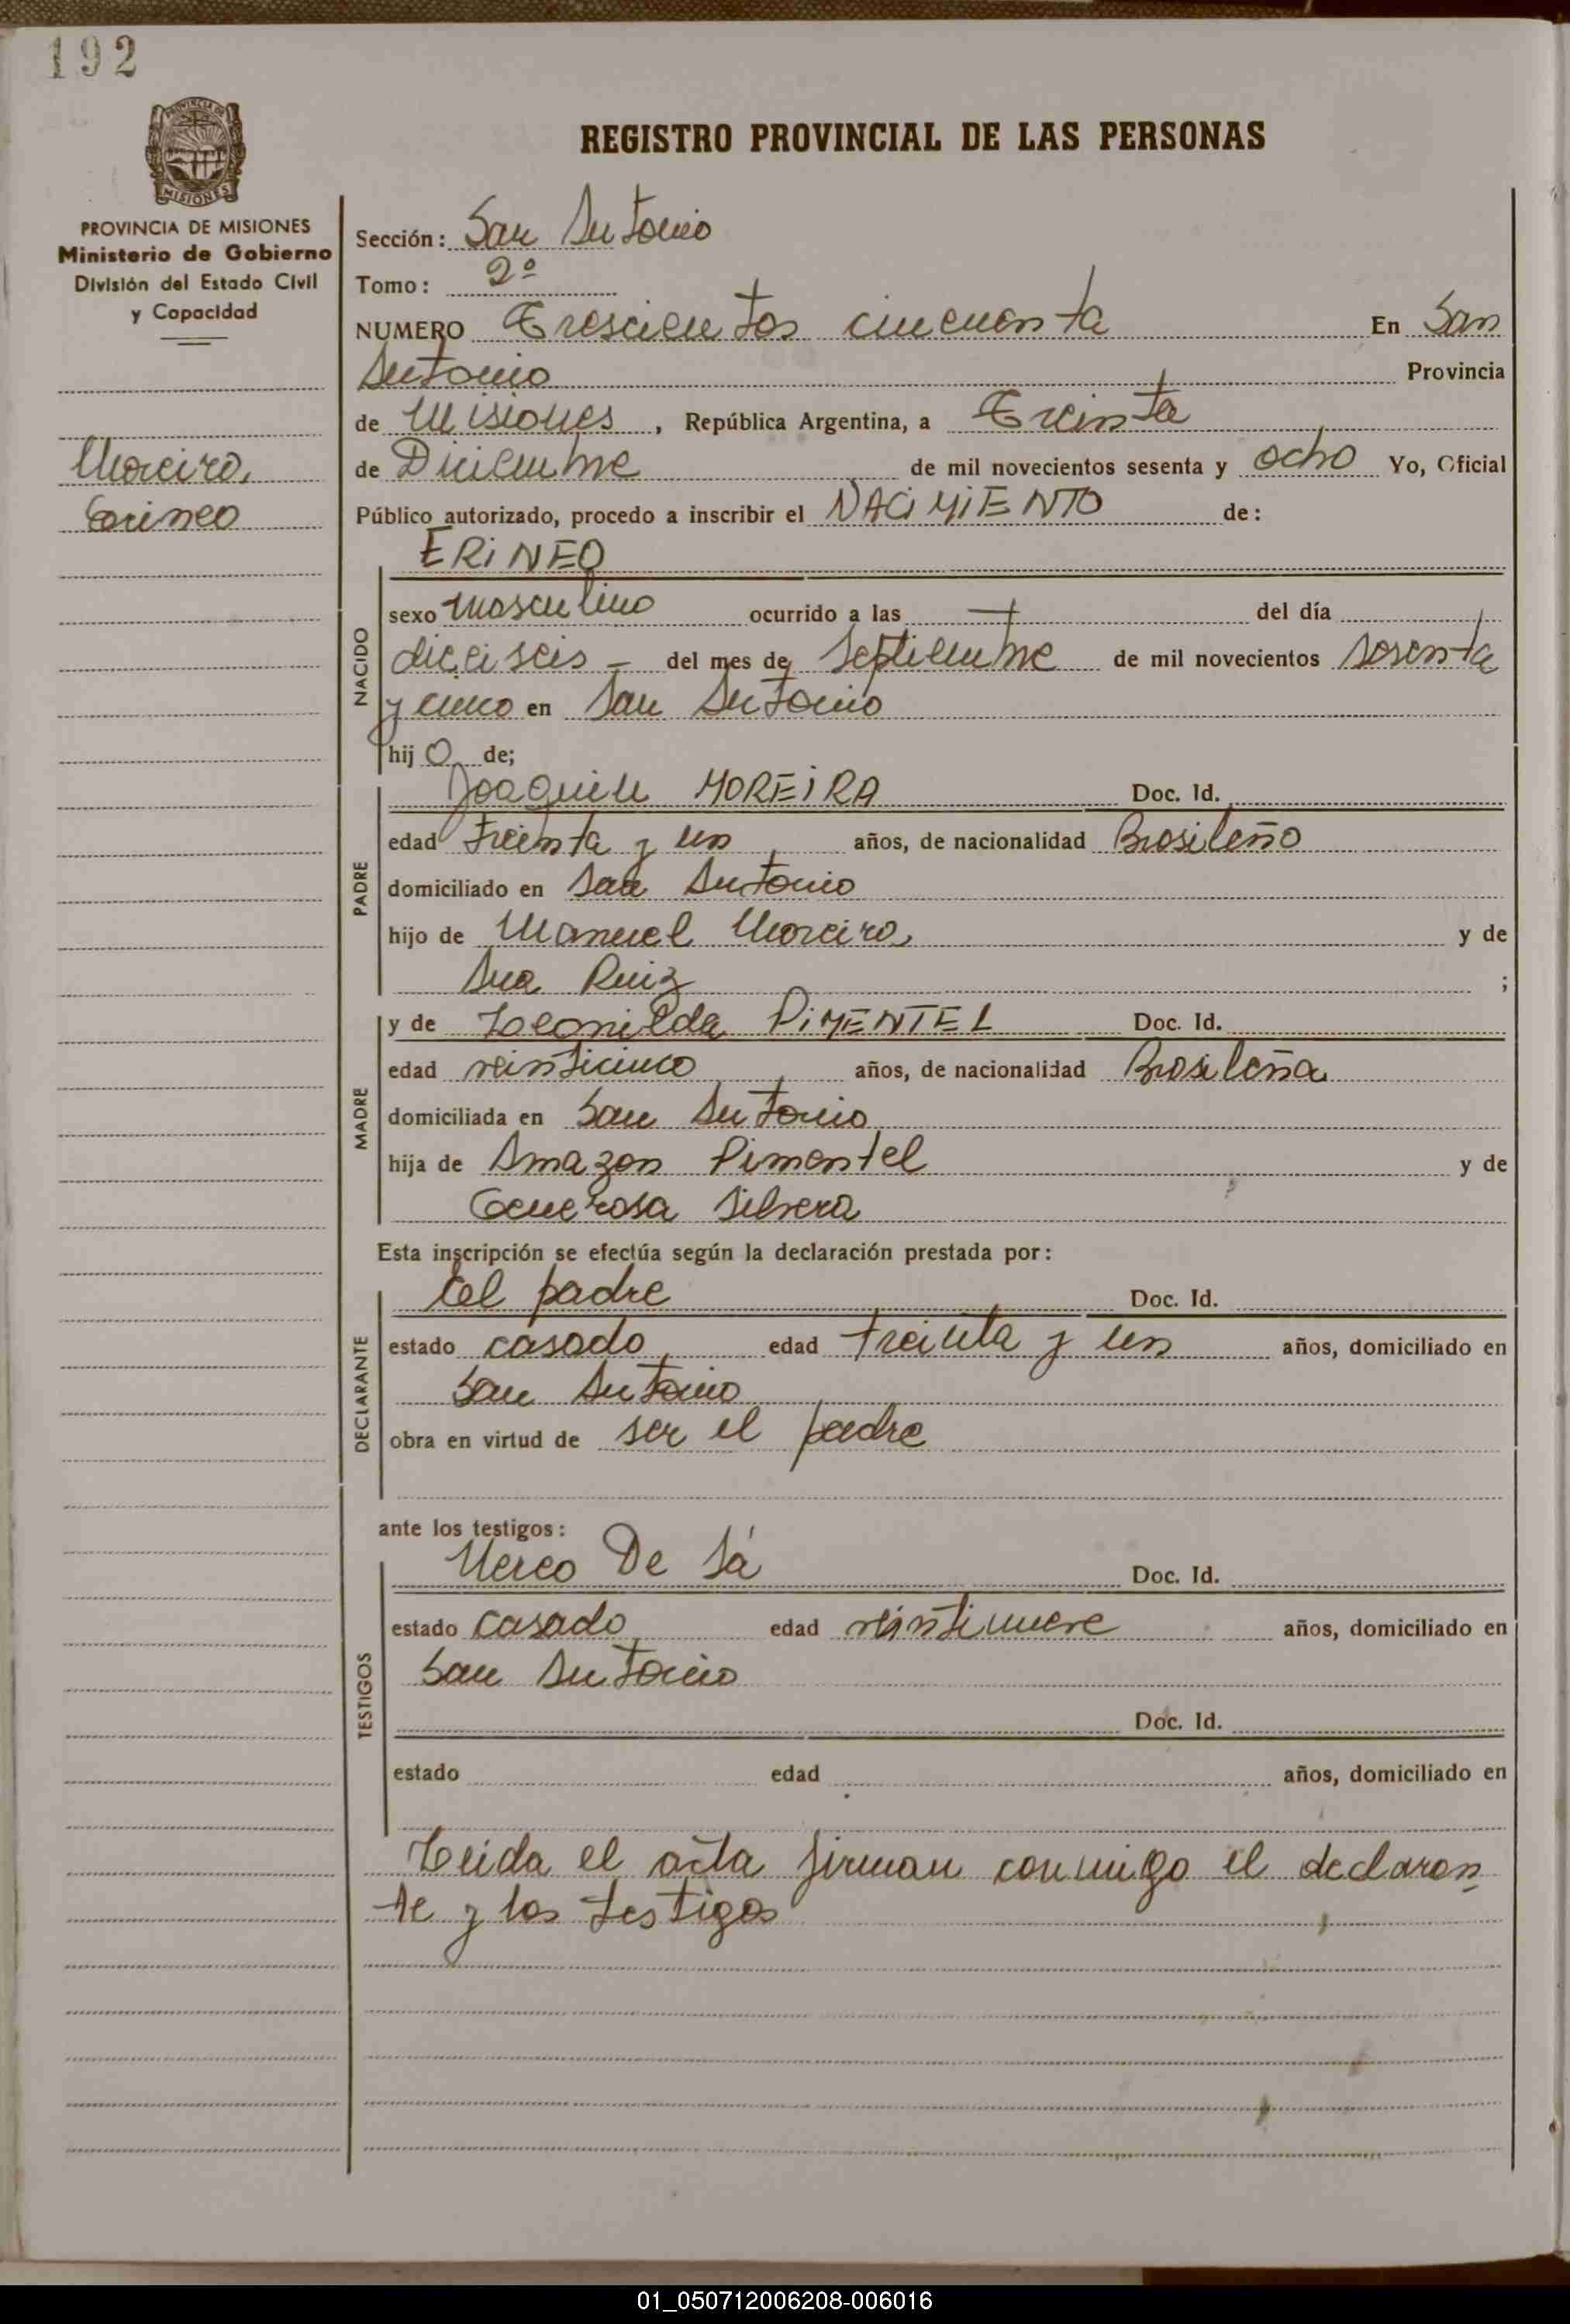 192
PROVINCIA DE MISIONES
PROVINCIA DE MISIONES
Ministerio de Gobierno
División del Estado Civil
y Capacidad
Moreira,
Erineo
REGISTRO PROVINCIAL DE LAS PERSONAS
Sección: San Antonio
Tomo: 2º
NUMERO Trescientos cincuenta En San
Antonio Provincia
de Misiones, República Argentina, a Treinta
de Diciembre de mil novecientos sesenta y ocho Yo, Oficial
Público autorizado, procedo a inscribir el NACIMIENTO de:
ERINEO
NACIDO
sexo masculino ocurrido a las — del día
dieciseis — del mes de Septiembre de mil novecientos sesenta
y cinco en San Antonio
hij o de;
PADRE
Joaquin MOREIRA Doc. Id.
edad treinta y un años, de nacionalidad Brasileño
domiciliado en San Antonio
hijo de Manuel Moreira, y de
Ana Ruiz ;
MADRE
y de Leonilda PIMENTEL Doc. Id.
edad veinticinco años, de nacionalidad Brasileña
domiciliada en San Antonio
hija de Amazon Pimentel y de
Generosa Silvera
Esta inscripción se efectúa según la declaración prestada por:
DECLARANTE
el padre Doc. Id.
estado casado edad treinta y un años, domiciliado en
San Antonio
obra en virtud de ser el padre
ante los testigos:
TESTIGOS
De Sá Doc. Id.
estado casado edad veintinueve años, domiciliado en
San Antonio
Doc. Id.
estado edad años, domiciliado en
Leida el acta firman conmigo el declaran
te y los testigos
01_050712006208-006016